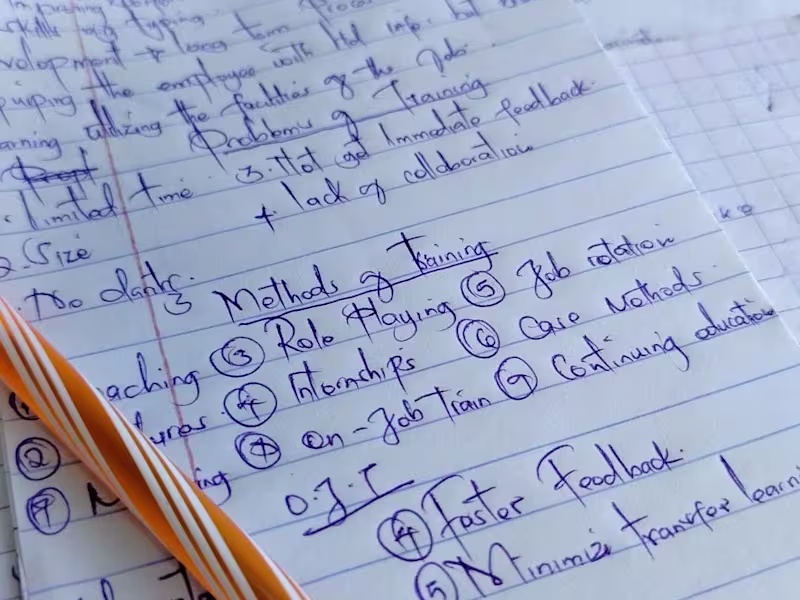 skills typing
development + long term
the employee with ltd info. but
utilizing the facilities of the Job.
Problems of Training
Limited time 3. Not get Immediate feedback.
+ lack of collaboration
2. Size
No
Methods of Training
aching ③ Role Playing ⑤ Job rotation
tures ④ Internships ⑥ Case Methods.
② On-Job Train ⑨ Continuing education
ing
O.J.T
④ Faster Feedback.
⑤ Minimize transfer learni